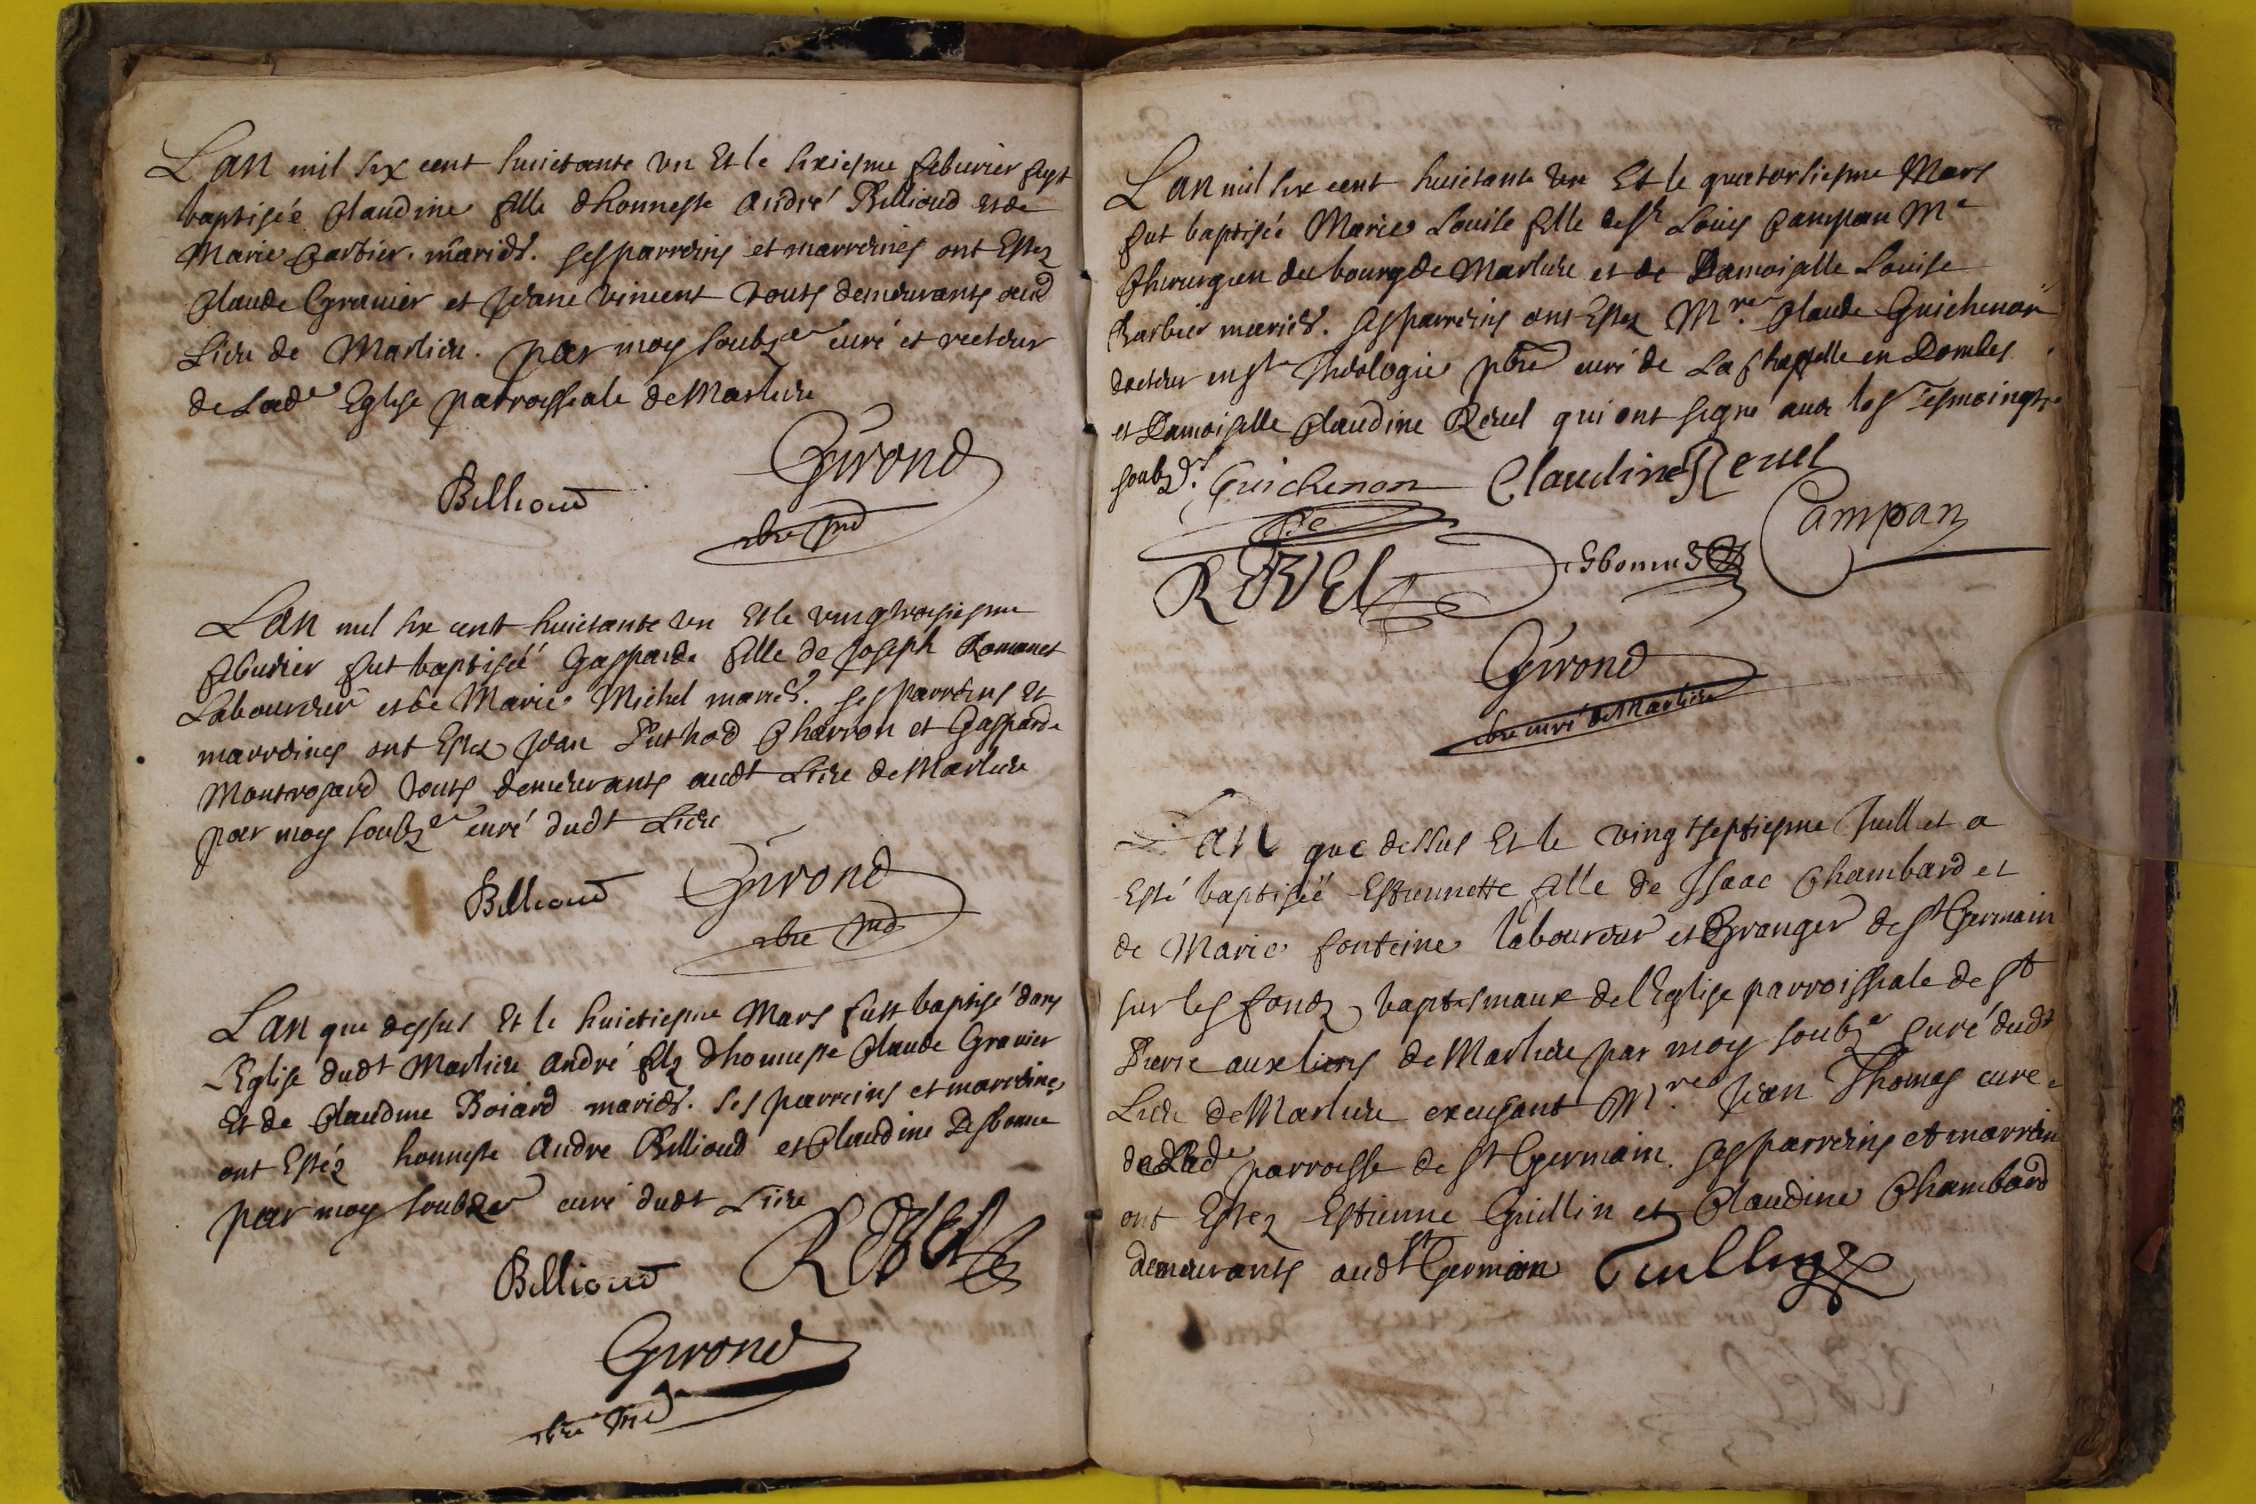 Lan mil six cent huictante un Et le sixiesme febvrier fust
baptisée Claudine fille dhonneste André Billioud et de
Marie Cartier mariés. ses parreins et marreines ont Estez
Claude Gravier et Jeane Vincent touts demeurants aud
Lieu de Marlieu. par moy soubzer curé et recteur
de Lade Eglise parroissiale de Marlieu
Girond
Billioud
Lan mil six cent huictante un Et le vingtroisiesme
febvrier fut baptisée Gasparde fille de Joseph Romanet
Laboureur et de Marie Michel mariés. ses parreins Et
marreines ont Estez Jean Puthod Charron et Gasparde
Montrosard touts demeurants audt Lieu de Marlieu
par moy soubzer curé dudt Lieu
Billioud Girond
Lan que dessus Et le huictiesme Mars fust baptisé dans
L'Eglise dudt Marlieu André filz dhonneste Claude Gravier
Et de Claudine Boiard mariés. ses parreins et marreines
ont Estéz honneste André Billioud et Claudine Desbonne
par moy soubzer curé dudt Lieu
Billioud REVEL
Girond
Lan mil six cent huictante un Et le quatorsiesme Mars
fut baptisée Marie Louise fille de sr Louis Campan Me
Chirurgien du bourg de Marlieu et de Damoiselle Louise
Barbier mariés. ses parreins ont Estez Mre. Claude Guichenon
docteur en ste Theologie pbre curé de La Chapelle en Dombes
et Damoiselle Claudine Revel qui ont signé avec les Tesmoings
soubzés. Guichenon Claudine Revel
Campan
REVEL
Girond
pbre curé de Marlieu
Lan que dessus Et le vingtseptiesme Juillet a
Esté baptisée Estiennette fille de Isaac Chambard et
de Marie fonteine laboureur et Granger de st Germain
sur les fondz baptismaux de l'Eglise parroissiale de st
Pierre aux liens de Marlieu par moy soubzer curé dudt
Lieu de Marlieu excusant Mre. Jean Thomas curé
de Lade parroisse de st Germain. ses parreins et marreine
ont Estez Estienne Guillin et Claudine Chambard
demeurants audt st Germain Guillin